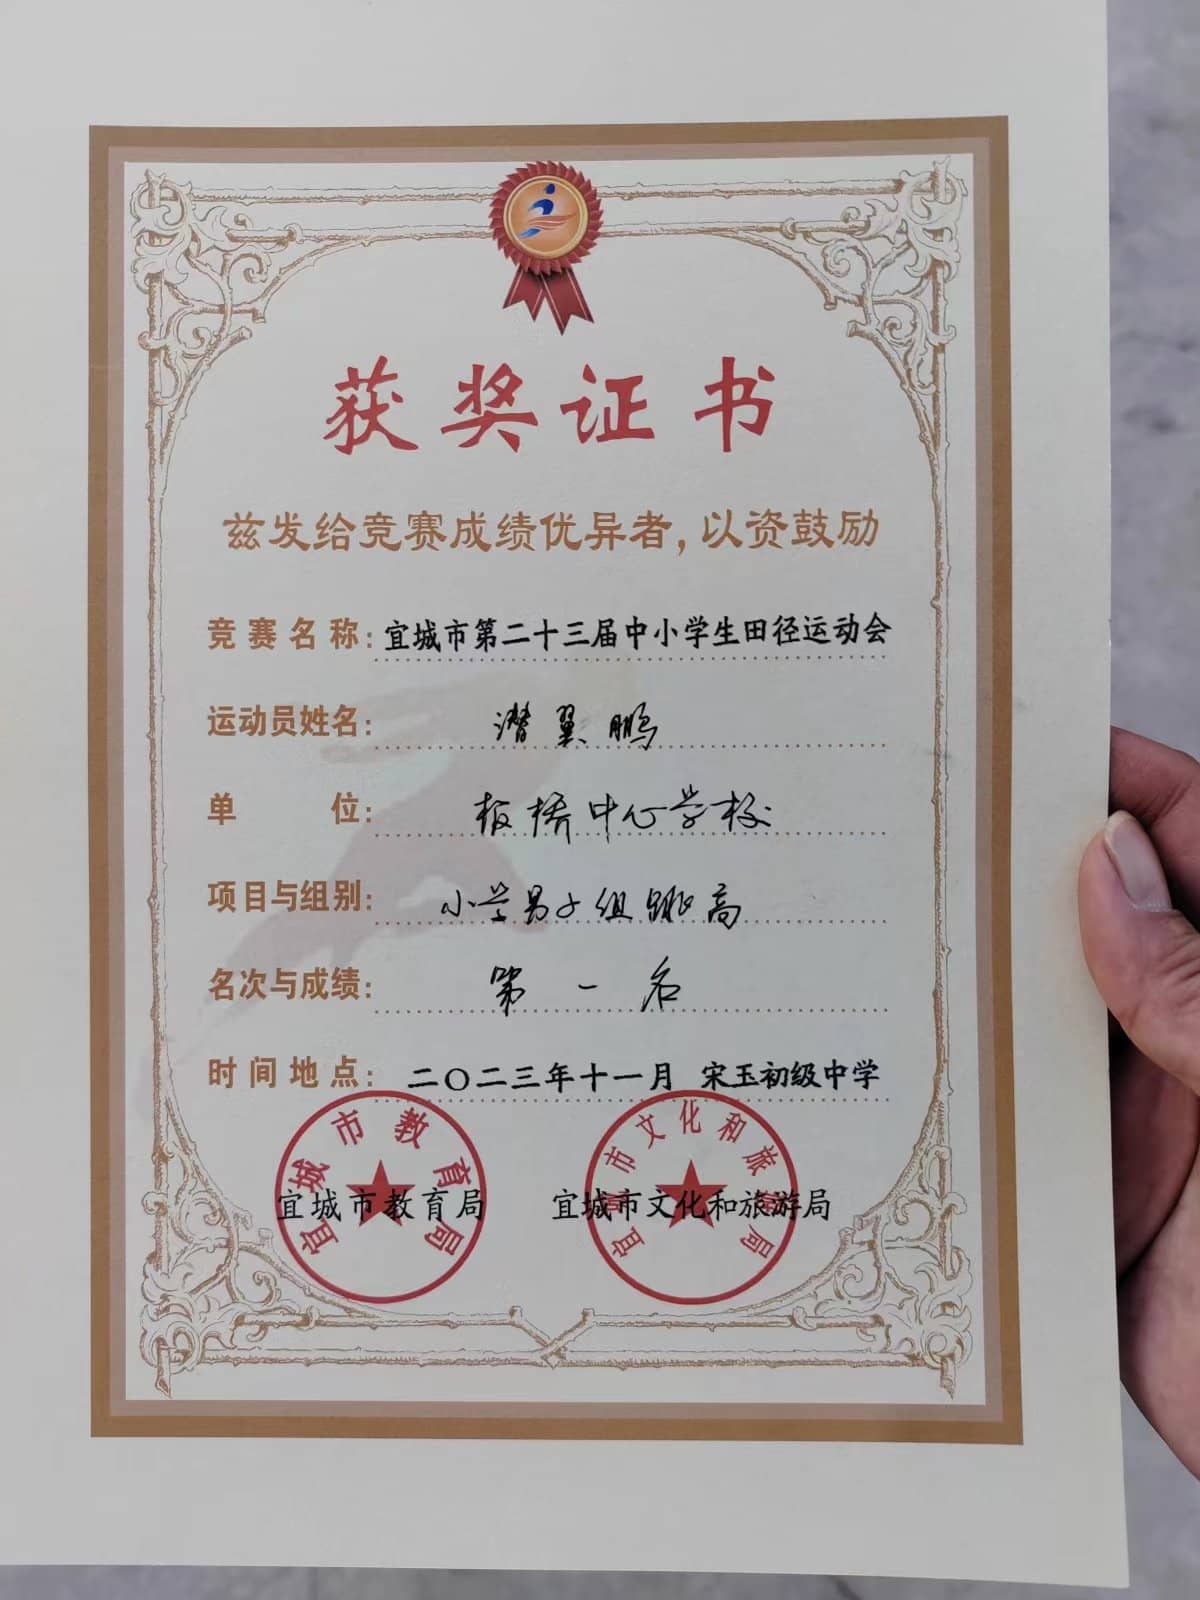 获奖证书
兹发给竞赛成绩优异者，以资鼓励
竞赛名称：宜城市第二十三届中小学生田径运动会
运动员姓名：潜翼鹏
单位：板桥中心学校
项目与组别：小学男子组跳高
名次与成绩：第一名
时间地点：二〇二三年十一月 宋玉初级中学
宜城市教育局
宜城市文化和旅游局
宜城市教育局 宜城市文化和旅游局